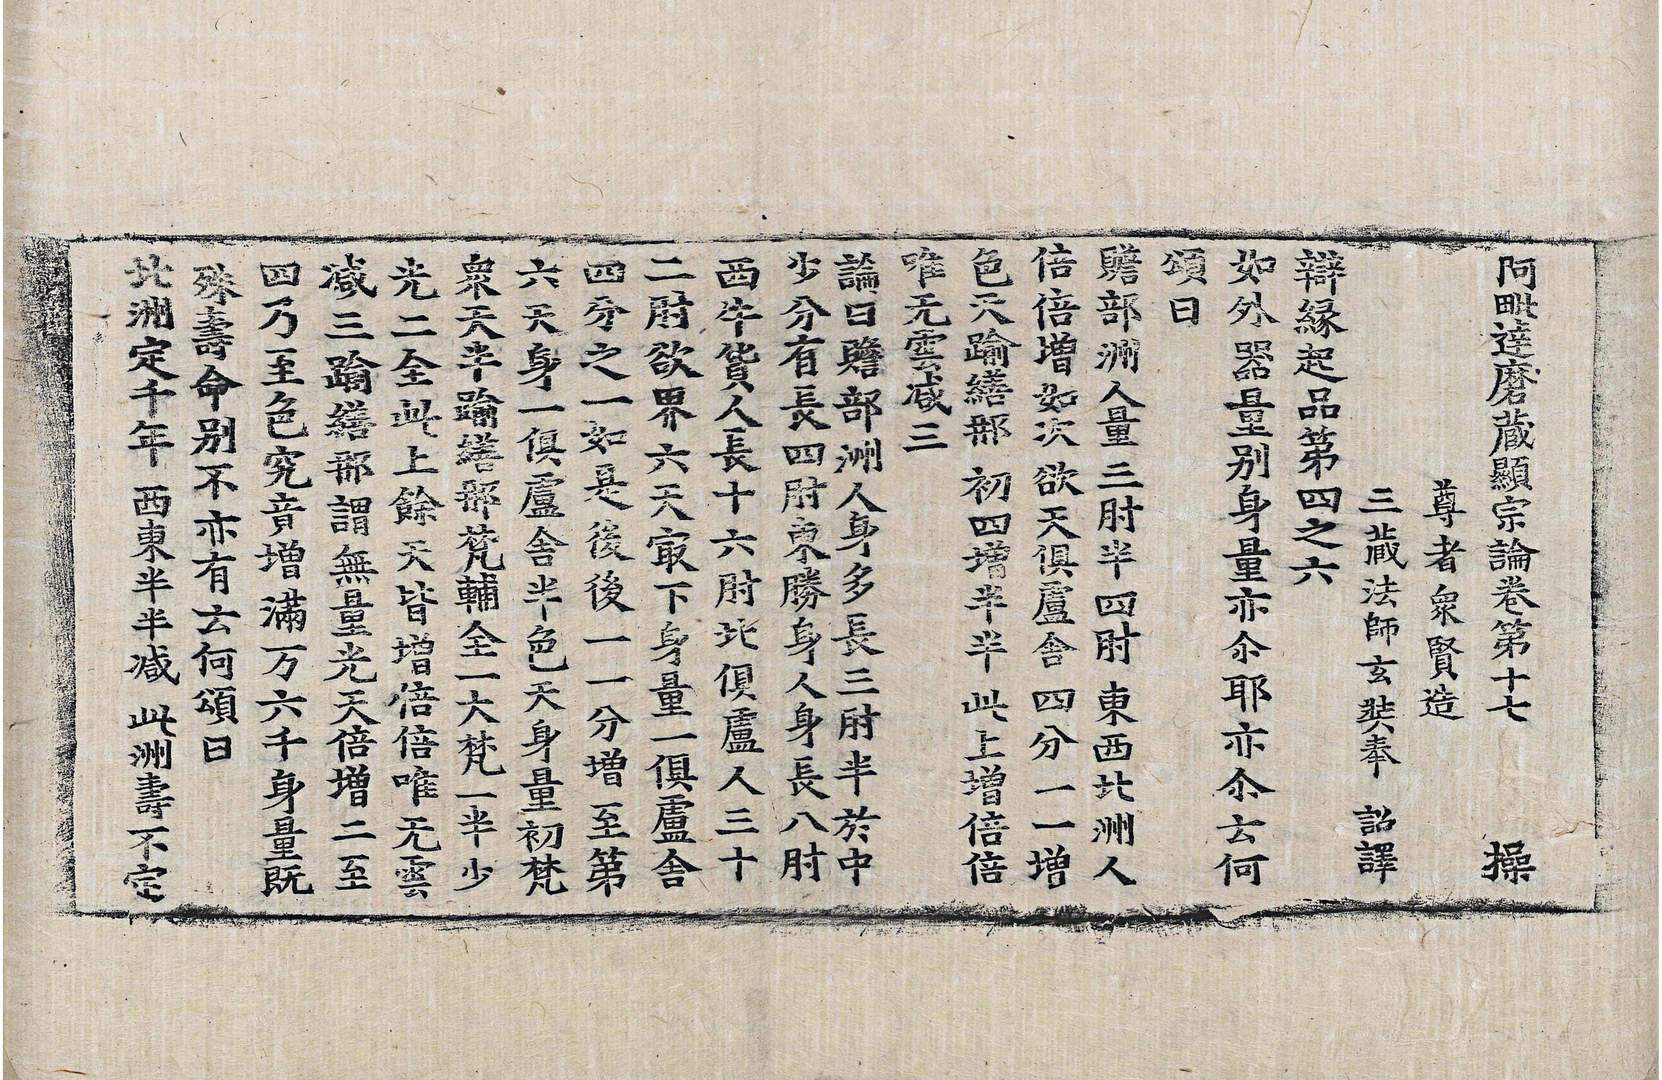 阿毗達磨藏顯宗論卷第十七 操
尊者衆賢造
三藏法師玄奘奉 詔譯
辯緣起品第四之六
如外器量别身量亦尒耶亦尒云何
頌曰
贍部洲人量 三肘半四肘 東西北洲人
倍倍增如次 欲天俱盧舍 四分一一增
色天踰繕那 初四增半半 此上增倍倍
唯无雲减三
論曰贍部洲人身多長三肘半於中
少分有長四肘東勝身人身長八肘
西牛貨人長十六肘北俱盧人三十
二肘欲界六天㝡下身量一俱盧舍
四分之一如是後後一一分增至第
六天身一俱盧舍半色天身量初梵
衆天半踰繕那梵輔全一大梵一半少
光二全此上餘天皆增倍倍唯无雲
减三踰繕那謂無量光天倍增二至
四乃至色究音增滿万六千身量既
殊壽命别不亦有云何頌曰
北洲定千年 西東半半减 此洲壽不定